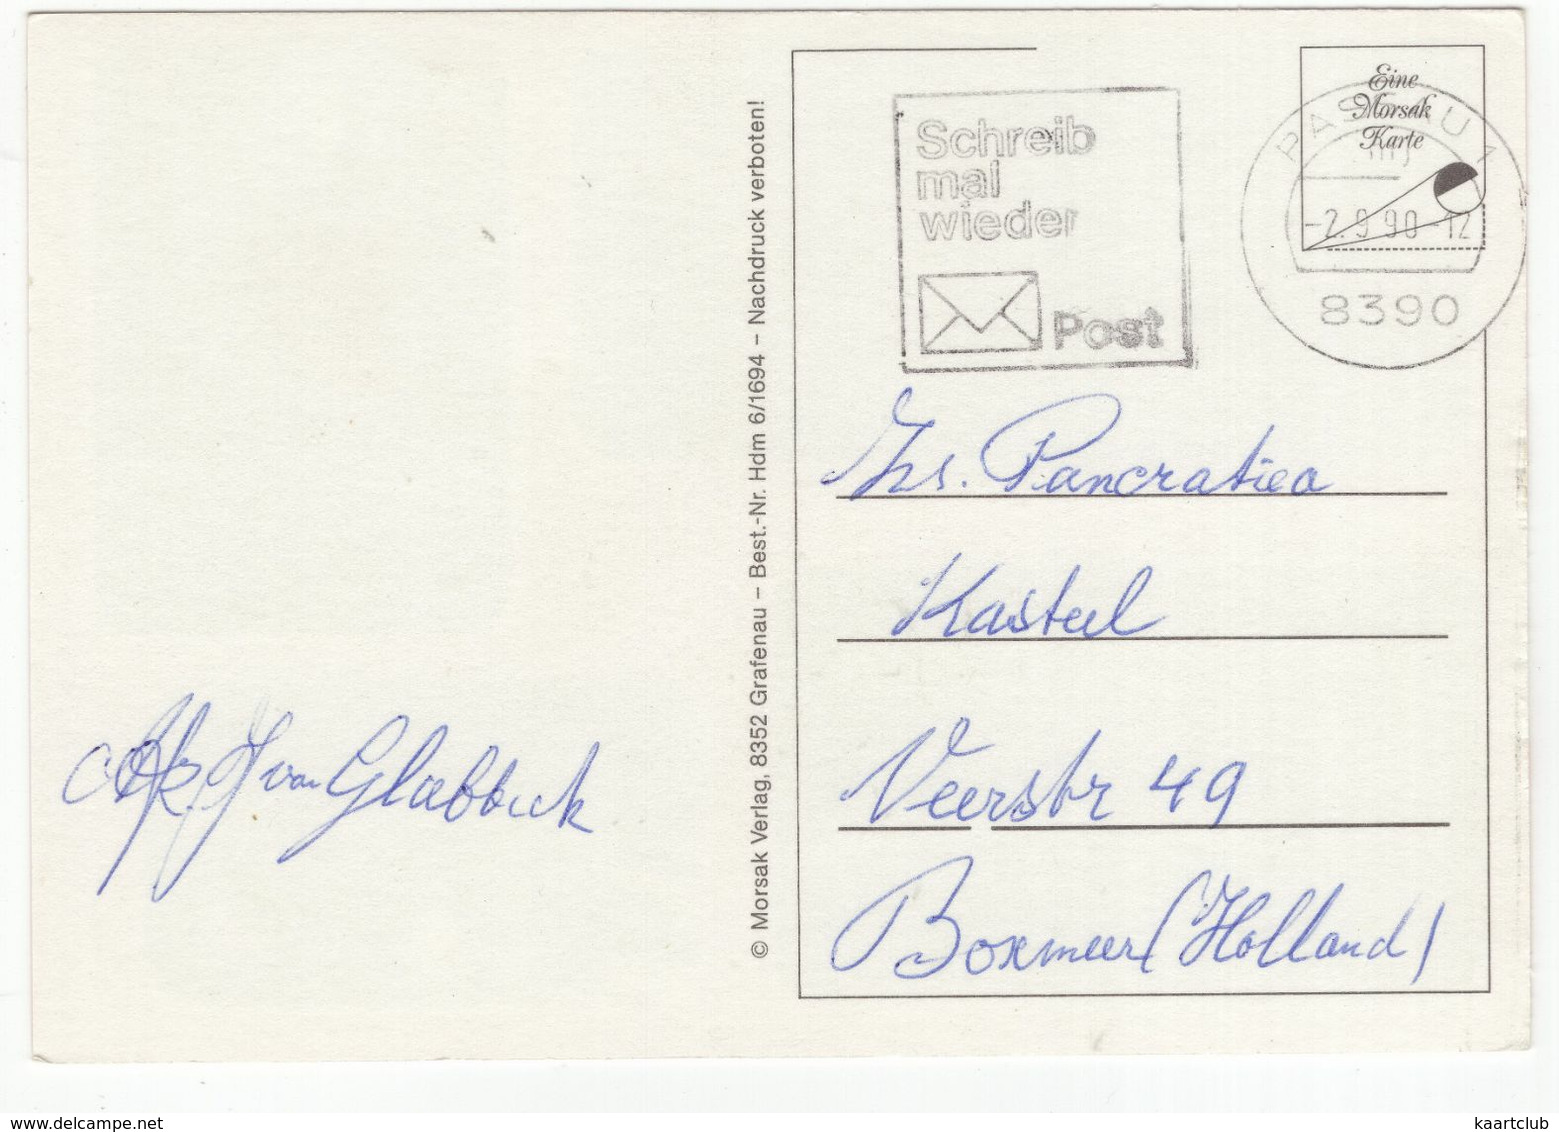 Eine
Morsak
Karte
Schreib
mal
wieder
Post
PASSAU 1
-2.9.90-12
8390
Zs. Pancratiea
Kasteel
Veerstr 49
Boxmeer (Holland)
van Glabbeek
© Morsak Verlag, 8352 Grafenau – Best.-Nr. Hdm 6/1694 – Nachdruck verboten!
www.delcampe.net
kaartclub